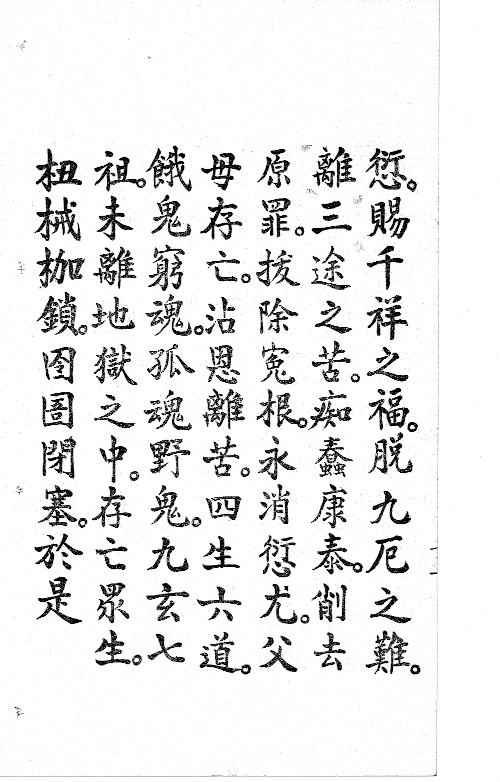 愆。賜千祥之福。脱九厄之難。
離三途之苦。痴蠢康泰。削去
原罪。拔除冤根。永消愆尤。父
母存亡。沾恩離苦。四生六道。
餓鬼窮魂。孤魂野鬼。九玄七
祖。未離地獄之中。存亡眾生。
杻械枷鎖。囹圄閉塞。於是